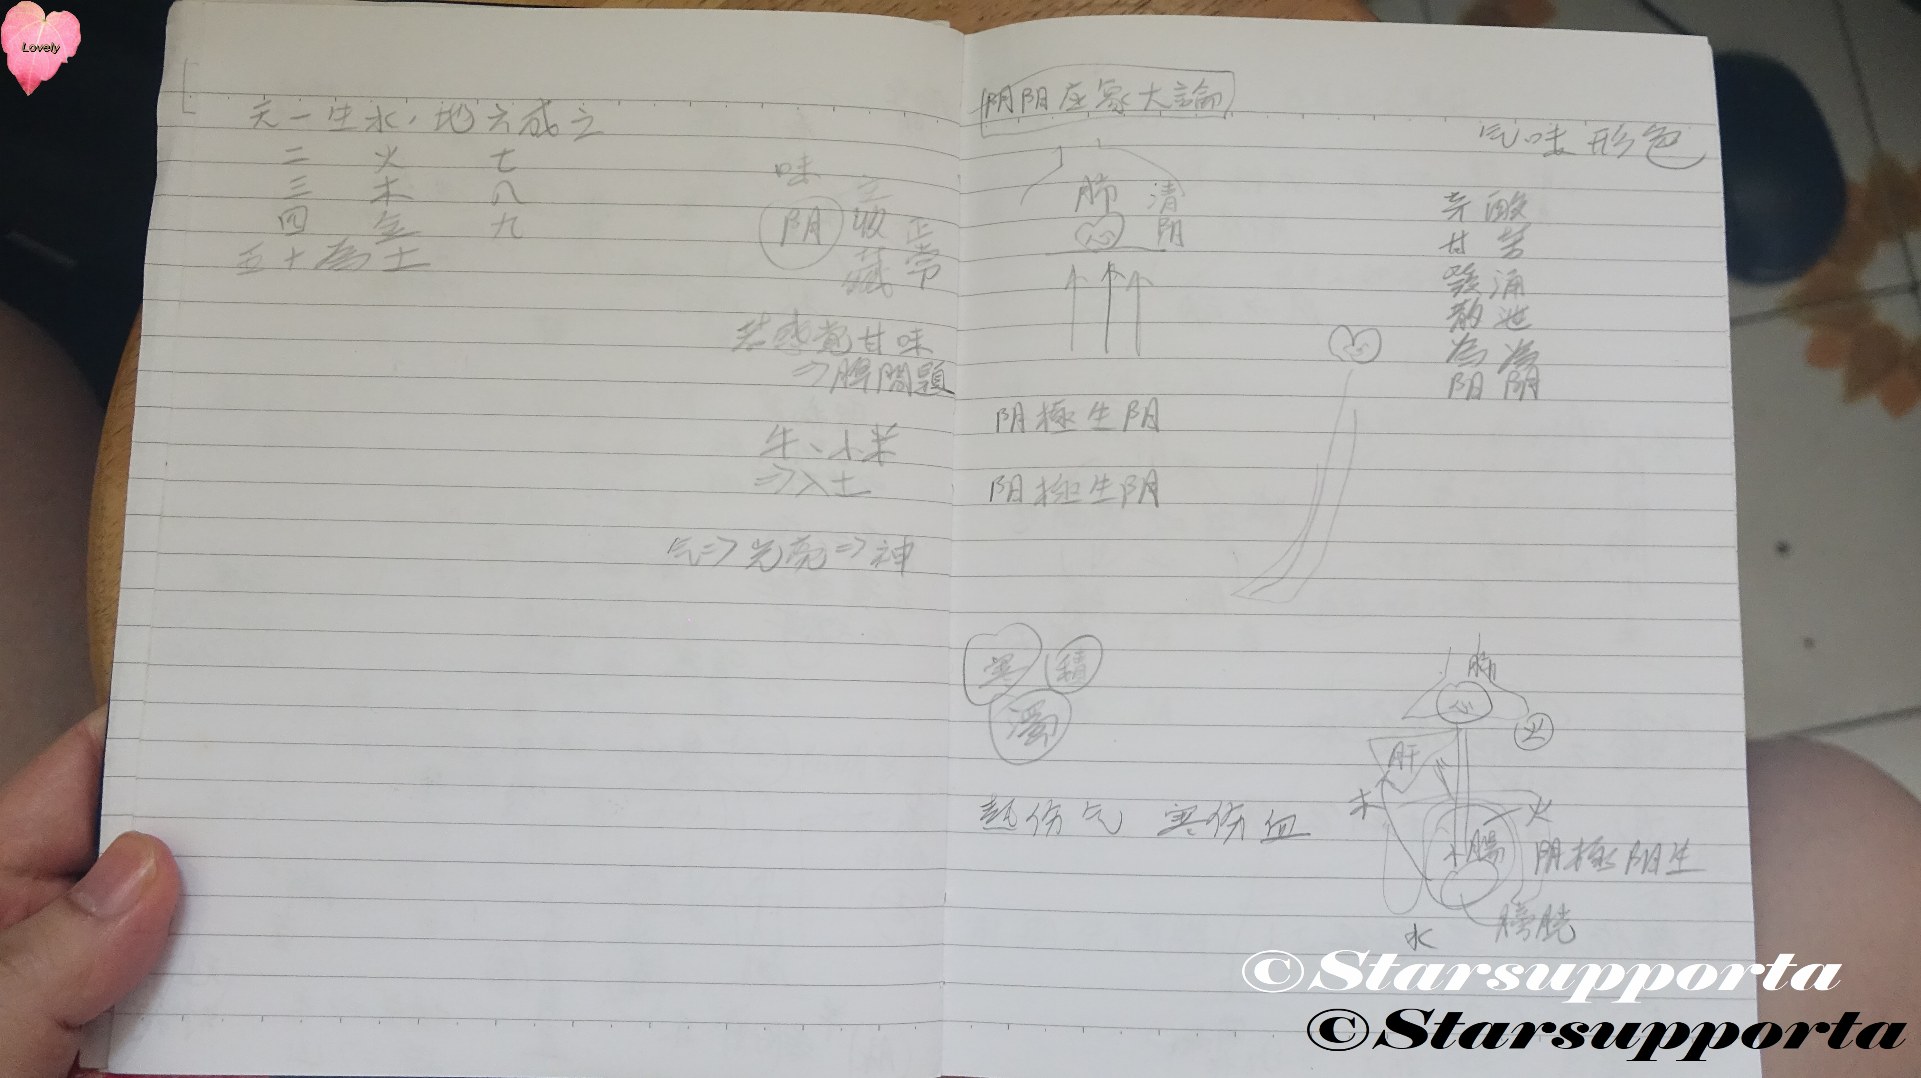 Lovely
天一生水，地六成之
二 火 七
三 木 八
四 金 九
五十為土
味
阴
主
收 正
藏 常
若感覺甘味
⇒脾問題
牛、小米
⇒入土
气⇒光亮⇒神
阴阳应象大論
气味形色
肺 清
心 阳
辛 酸
甘 苦
發 涌
散 泄
為 為
阳 阴
心
阴極生阳
阳極生阴
寒 精
濁
肺
心
火
肝
木 火
小腸
阳極阴生
熱伤气 寒伤血
膀胱
水
©Starsupporta
©Starsupporta